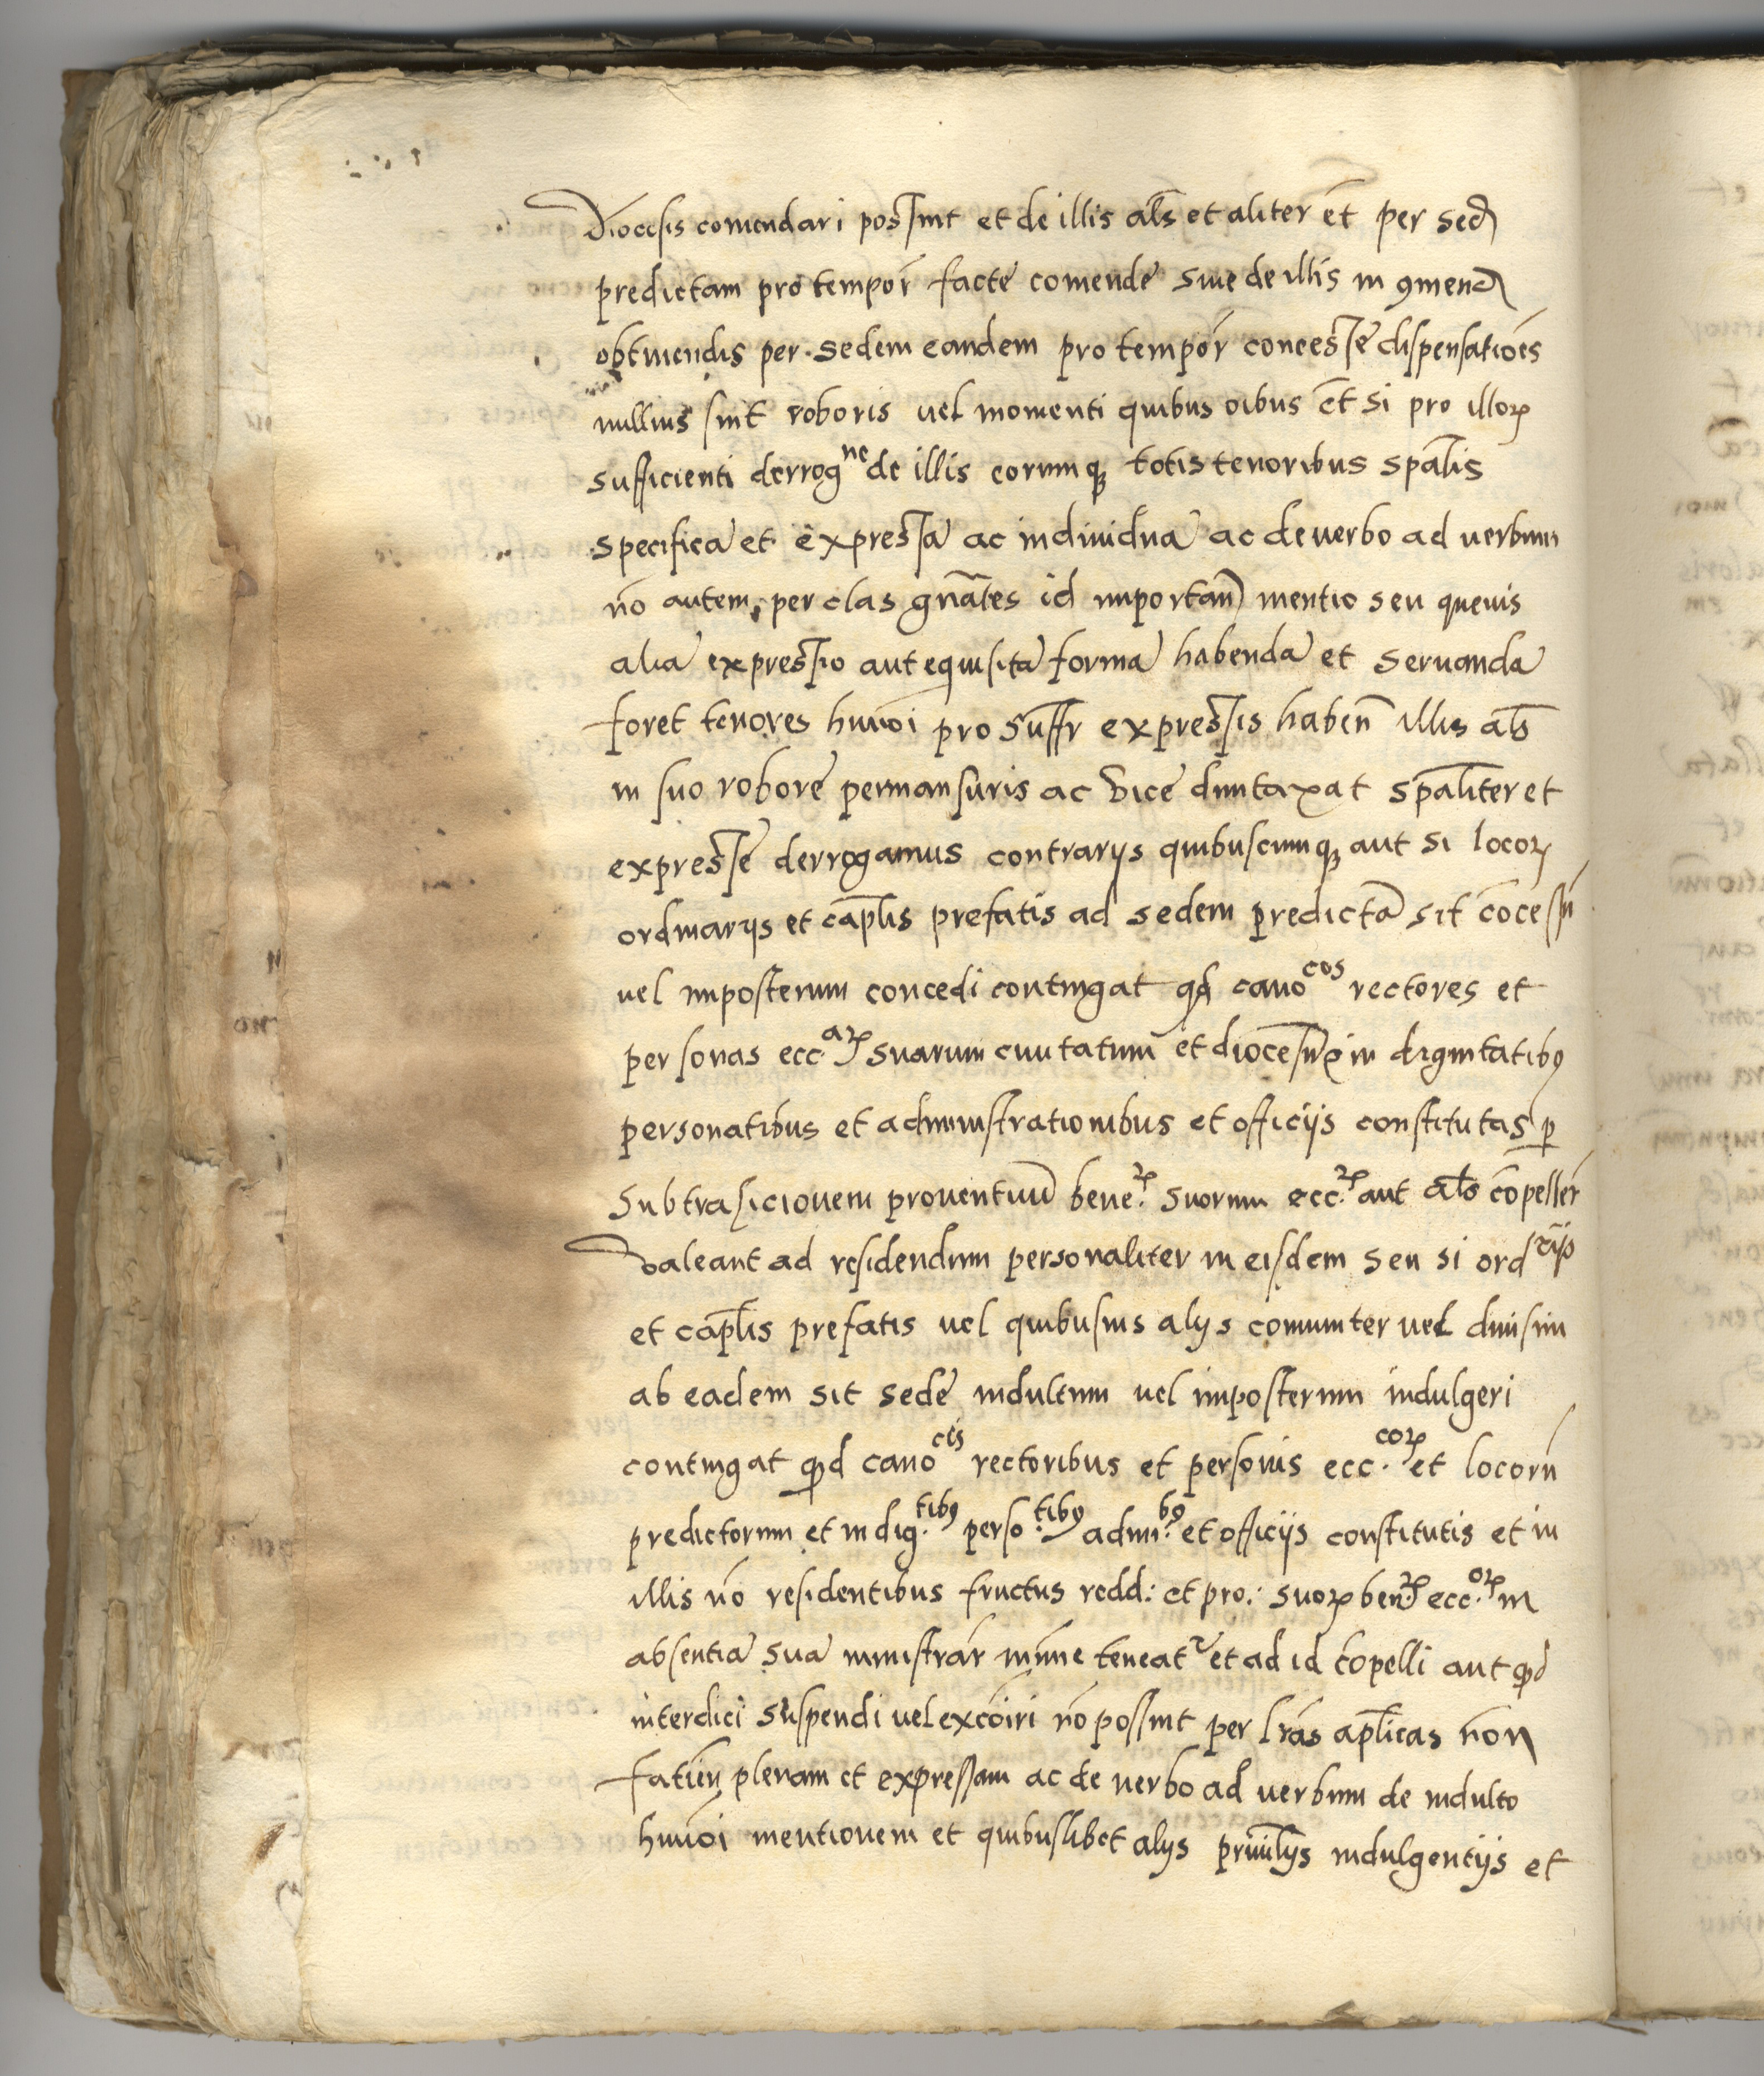 Diocesis comendari possint et de illis al̄s et aliter ēt per sed̄
predictam pro tempor̄ facte comende siue de illis in ꝯmend̄
obtinendis per sedem eandem pro tempor̄ concesse dispensatiōes
nullius sint roboris uel momenti quibus oībus ēt si pro illoꝝ
sufficienti derrogⁿᵉ de illis eorumqꝫ totis tenoribus spāl̄is
specifica et expressa ac indiuidua ac de uerbo ad uerbum
nō autem per clas gn̄āles id importan̄ mentio seu queuis
alia expressio aut equisita forma habenda et seruanda
foret tenores hmōi pro suff̄r expressis haben̄ illis al̄s
in suo robore permansuris ac uice duntaxat sp̄aliter et
expresse derrogamus contrarijs quibuscumqꝫ aut si locoꝝ
ordinarijs et cap̄lis prefatis ad sedem predictā sit cōcessū
uel imposterum concedi contingat qd̄ canoᶜᵒˢ rectores et
personas ecc.ᵃꝝ suarum ciuitatum et diocesn̄ in dignitatibꝯ
personatibus et administrationibus et officijs constitutas ꝑ
subtraxicionem prouentuū bene.ꝝ suorum ecc.ꝝ aut al̄s cōpeller̄
ualeant ad residendum personaliter in eisdem seu si ordʳⁱʲˢ
et cap̄lis prefatis uel quibusuis alijs comuniter uel diuisim
ab eadem sit sede indultum uel imposterum indulgeri
contingat ꝙd canoᶜⁱˢ rectoribus et personis ecc.ᶜᵒꝝ et locorū
predictorum et in dig.ᵗⁱᵇꝯ perso.ᵗⁱᵇꝯ admi.ᵇꝯ et officijs constitutis et in
illis nō residentibus fructus redd: et pro: suoꝝ ben.ꝝ ecc.ᵒꝝ in
absentia sua ministrar̄ mīme teneatʳ et ad id cōpelli aut ꝙd
interdici suspendi uel excōiri nō possint per l̄ras ap̄licas non
fatien̄ plenam et expressam ac de uerbo ad uerbum de indulto
hmōi mentionem et quibuslibet alijs priuil̄ijs indulgentijs et